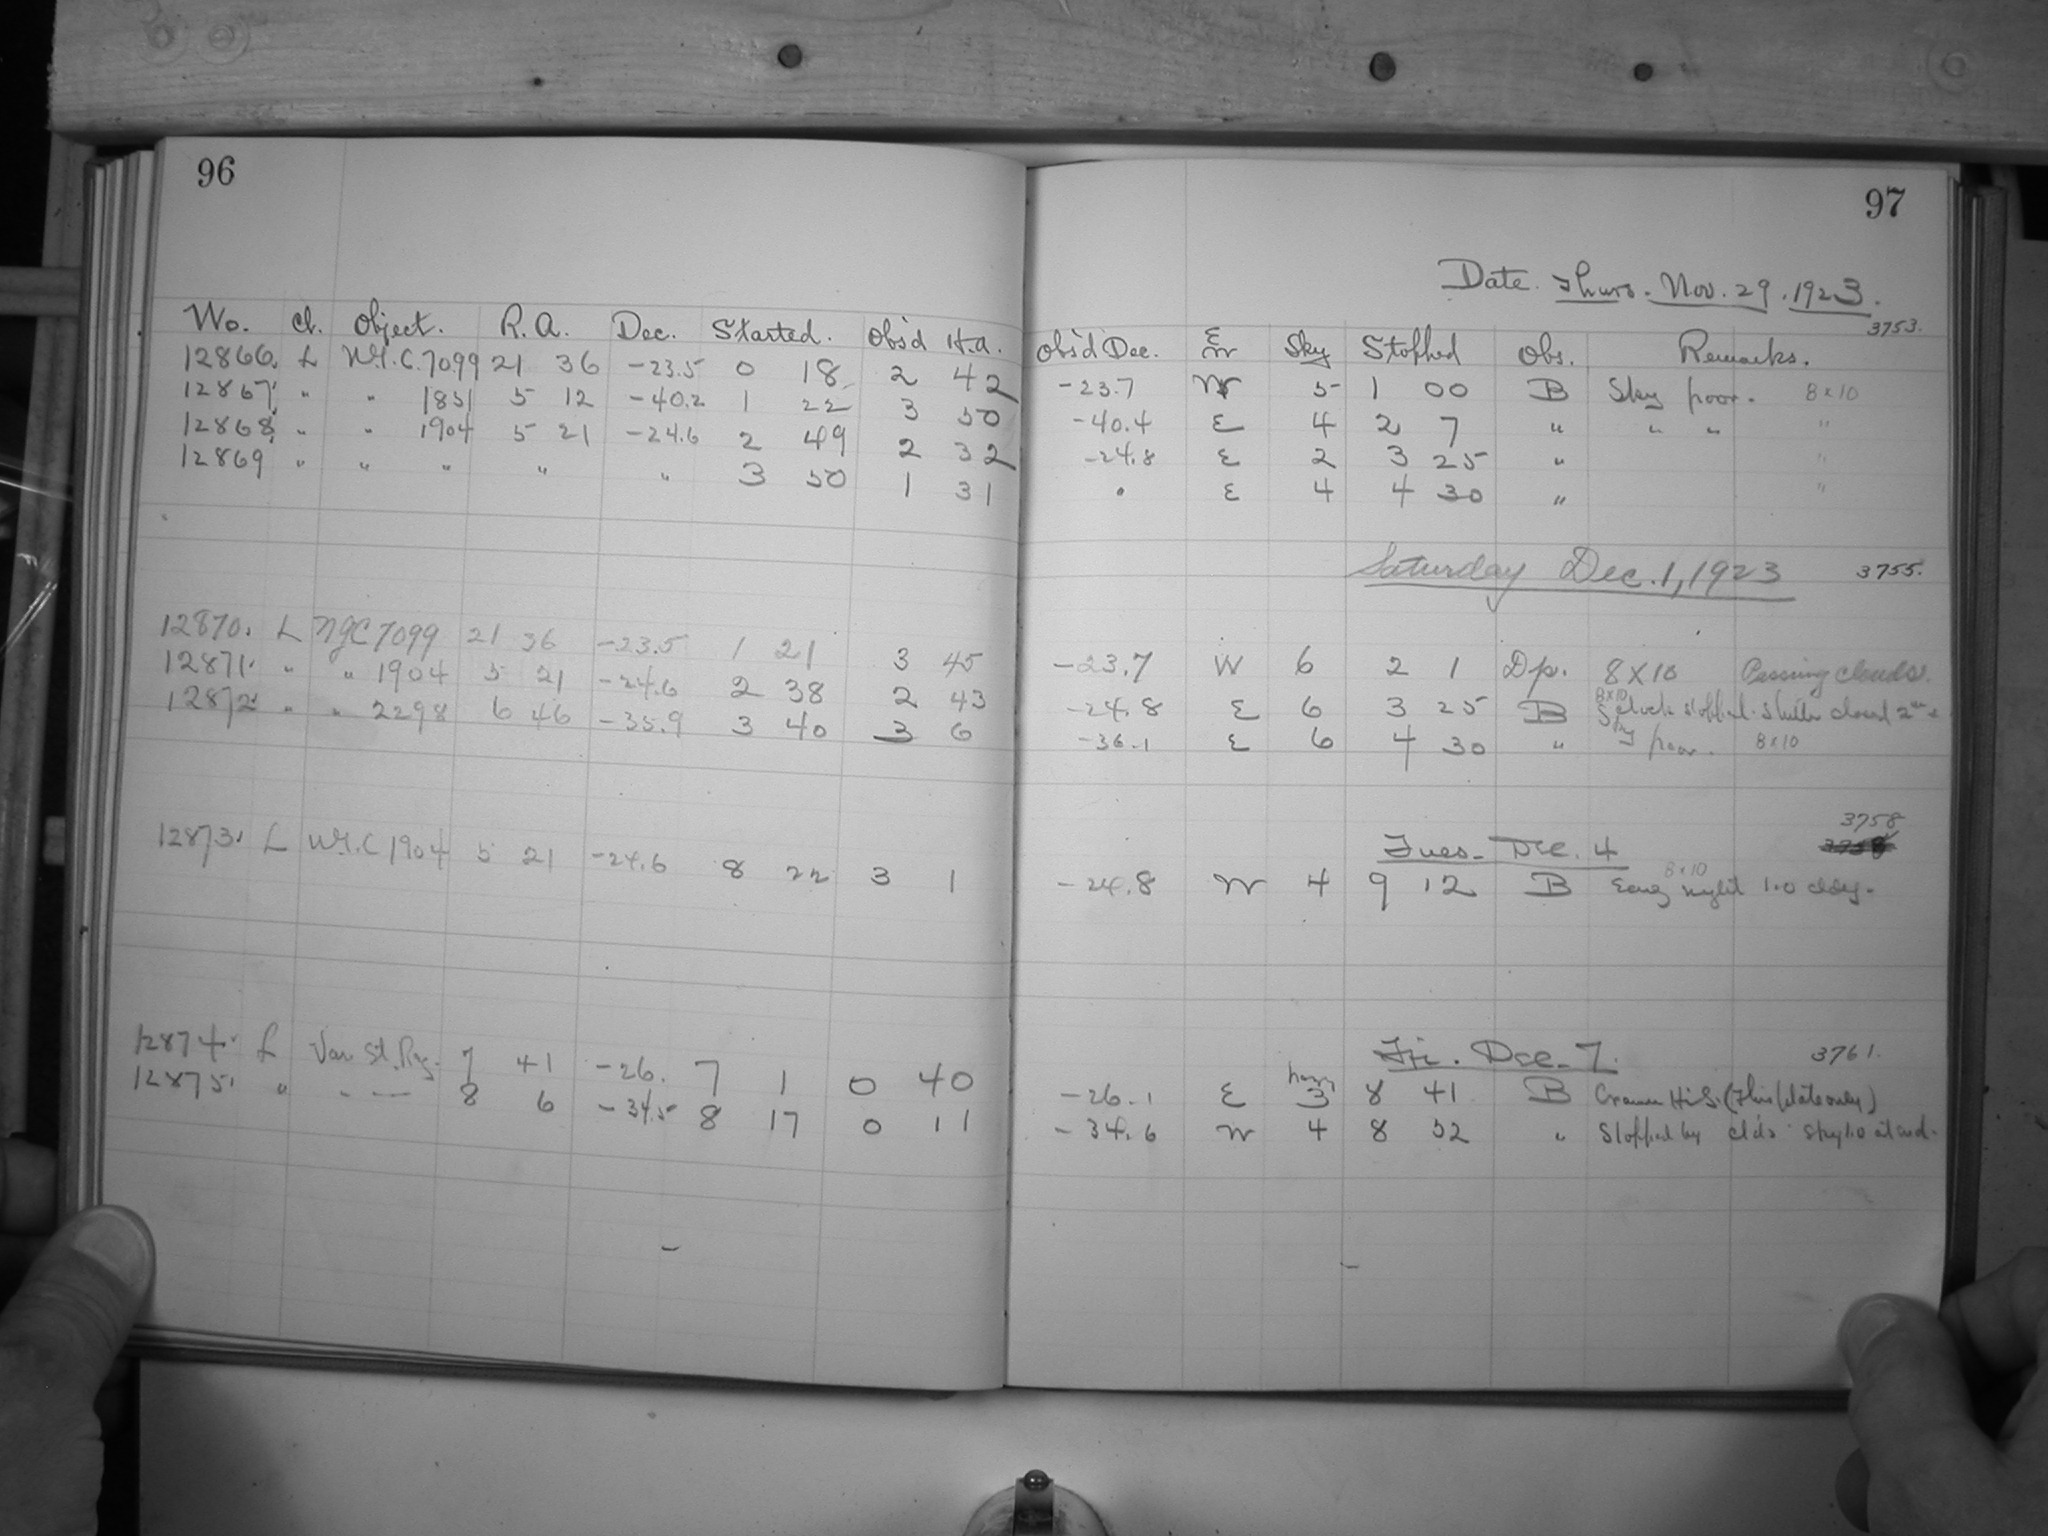 96
97
Date. Thurs. Nov. 29. 1923.
3753.
No. Cl. Object. R.A. Dec. Started. Obs'd H.A. Obs'd Dec. E W Sky Stopped Obs. Remarks.
12866. L N.G.C. 7099 21 36 -23.5 0 18 2 42 -23.7 W 5 1 00 B Sky poor. 8x10
12867. " " 1851 5 12 -40.2 1 22 3 50 -40.4 E 4 2 7 " " " "
12868. " " 1904 5 21 -24.6 2 49 2 32 -24.8 E 2 3 25 " "
12869 " " " " " 3 50 1 31 " E 4 4 30 " "
Saturday Dec. 1, 1923 3755.
12870. L NGC 7099 21 36 -23.5 1 21 3 45 -23.7 W 6 2 1 Dp. 8X10 Passing clouds.
12871. " " 1904 5 21 -24.6 2 38 2 43 -24.8 E 6 3 25 B 8x10 Clock stopped. Shutter closed
12872. " " 2298 6 46 -35.9 3 40 3 6 -36.1 E 6 4 30 " Sky poor. 8x10
Tues. Dec. 4 3758
12873. L N.G.C 1904 5 21 -24.6 8 22 3 1 -24.8 W 4 9 12 B Early night 10 cldy. 8x10
Fri. Dec. 7. 3761.
12874. L Var. St. Rg. 7 41 -26. 7 1 0 40 -26.1 E hazy 3 8 41 B Cramer Hi S. (This plate only)
12875. " " — 8 6 -34.5 8 17 0 11 -34.6 W 4 8 52 " Stopped by clds. Sky 10 at end.